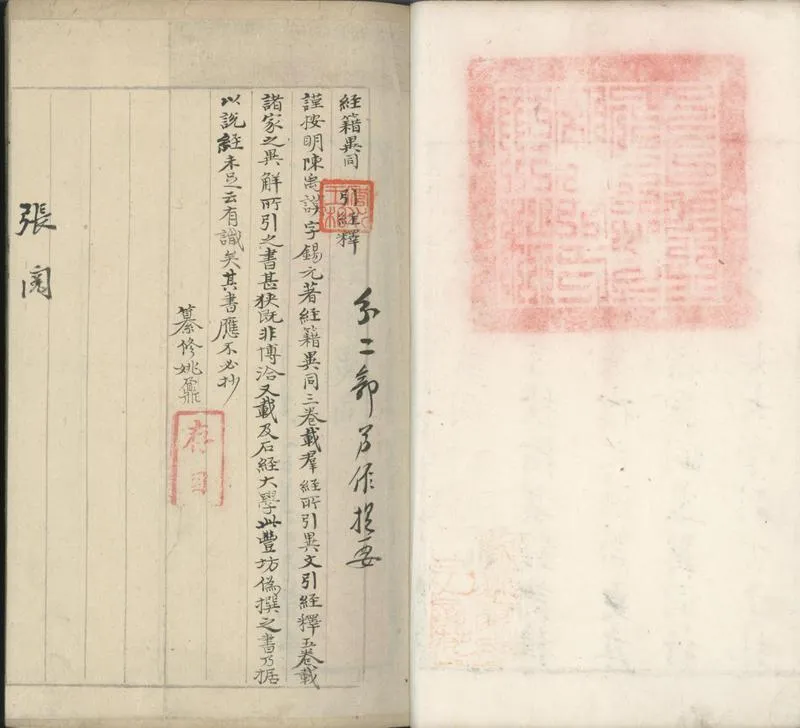 經籍異同 引經釋
分二部另作提要
謹按明陳禹謨字錫元著經籍異同三卷載羣經所引異文引經釋五卷載
諸家之異解所引之書甚狹既非博洽又載及石經大學此豐坊偽撰之書乃據
以說經未足云有識矣其書應不必抄
纂修姚鼐
存目
張 閱